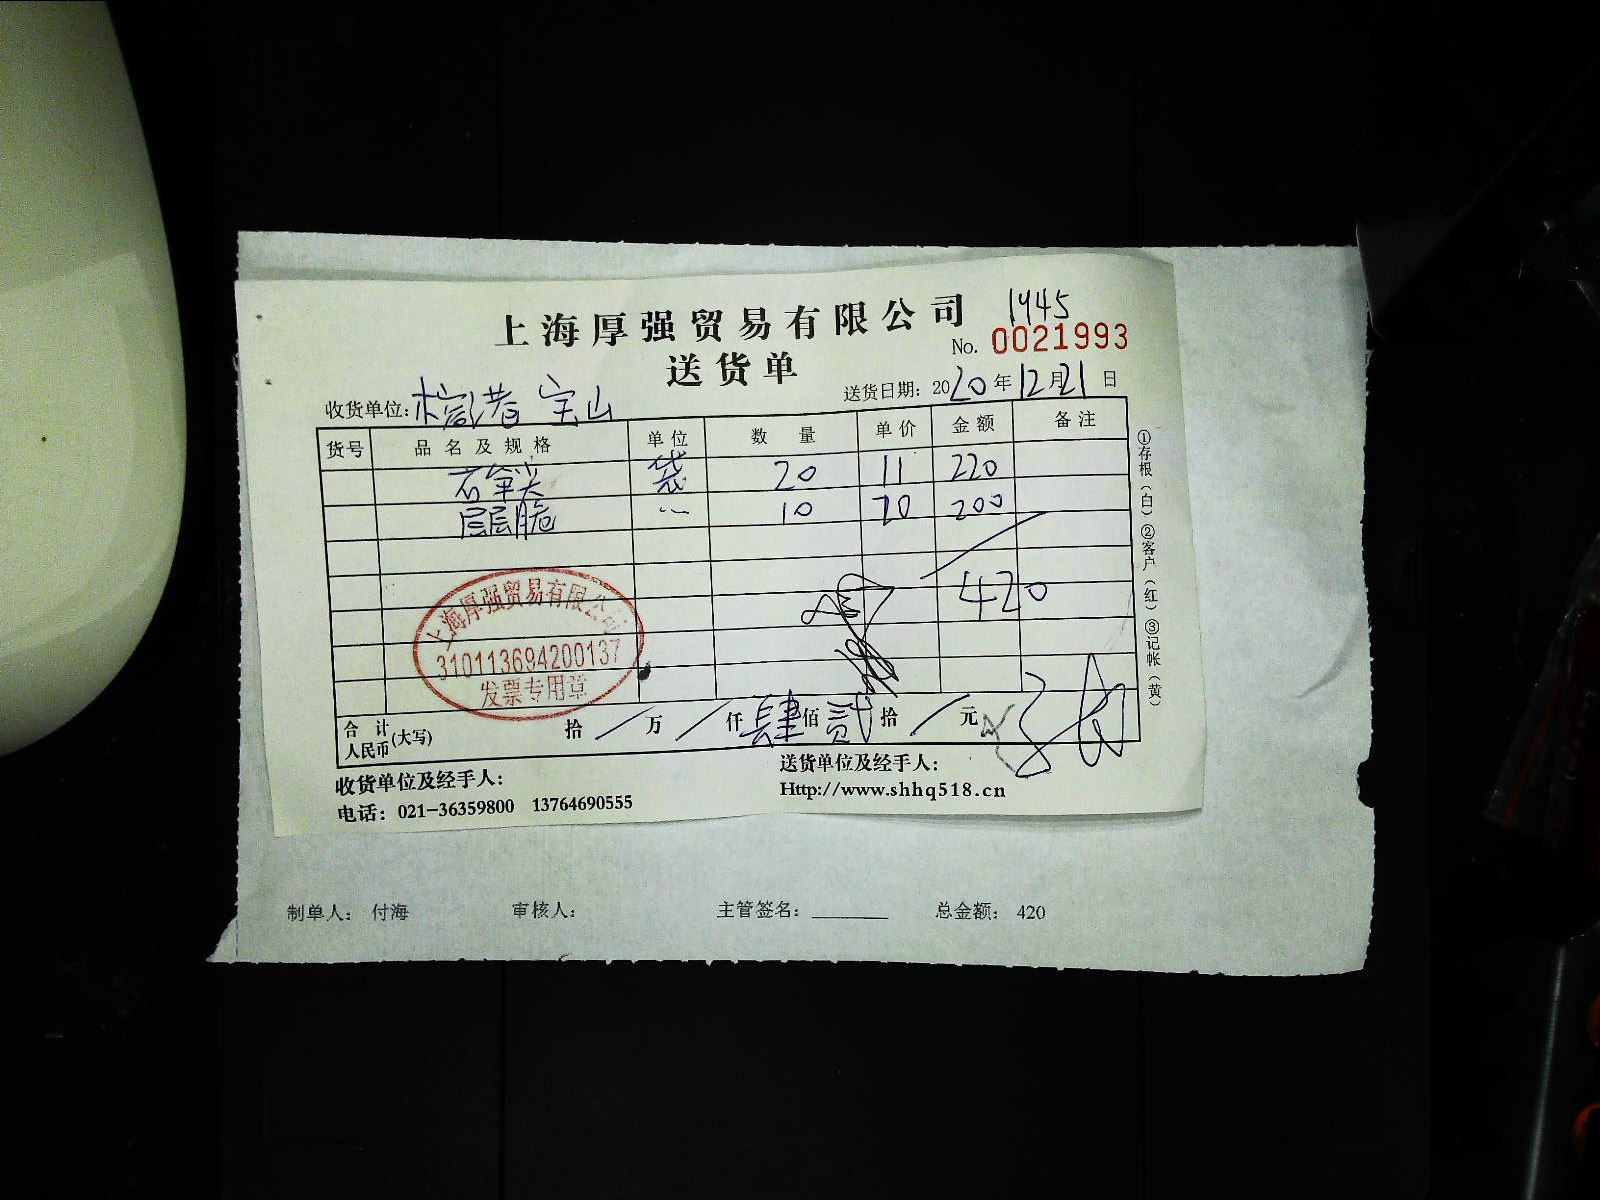 上海厚强贸易有限公司 1945
No. 0021993
送货单
收货单位: 宝山 送货日期: 2020年12月21日
货号 品名及规格 单位 数量 单价 金额 备注
石笋尖 袋 20 11 220
层层脆 〃 10 20 200
420
上海厚强贸易有限公司
310113694200137
发票专用章
合计人民币(大写) 拾 / 万 / 仟 肆 佰 贰 拾 / 元
收货单位及经手人: 送货单位及经手人:
电话: 021-36359800 13764690555 Http://www.shhq518.cn
①存根(白)②客户(红)③记帐(黄)
制单人: 付海 审核人: 主管签名: ________ 总金额: 420